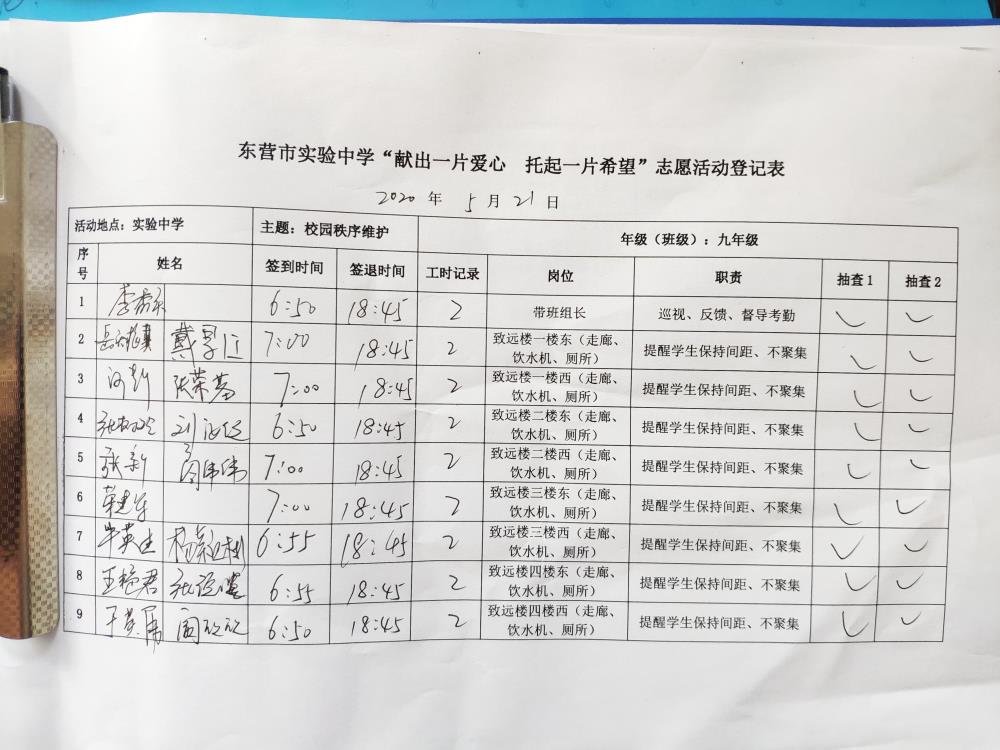 东营市实验中学“献出一片爱心 托起一片希望”志愿活动登记表
2020 年 5 月 21 日
活动地点：实验中学 主题：校园秩序维护 年级（班级）：九年级
序号 姓名 签到时间 签退时间 工时记录 岗位 职责 抽查1 抽查2
1 6:50 18:45 2 带班组长 巡视、反馈、督导考勤
2 7:00 18:45 2 致远楼一楼东（走廊、
饮水机、厕所） 提醒学生保持间距、不聚集
3 7:00 18:45 2 致远楼一楼西（走廊、
饮水机、厕所） 提醒学生保持间距、不聚集
4 6:50 18:45 2 致远楼二楼东（走廊、
饮水机、厕所） 提醒学生保持间距、不聚集
5 张新 7:00 18:45 2 致远楼二楼西（走廊、
饮水机、厕所） 提醒学生保持间距、不聚集
6 7:00 18:45 2 致远楼三楼东（走廊、
饮水机、厕所） 提醒学生保持间距、不聚集
7 6:55 18:45 2 致远楼三楼西（走廊、
饮水机、厕所） 提醒学生保持间距、不聚集
8 王艳君 6:55 18:45 2 致远楼四楼东（走廊、
饮水机、厕所） 提醒学生保持间距、不聚集
9 6:50 18:45 2 致远楼四楼西（走廊、
饮水机、厕所） 提醒学生保持间距、不聚集